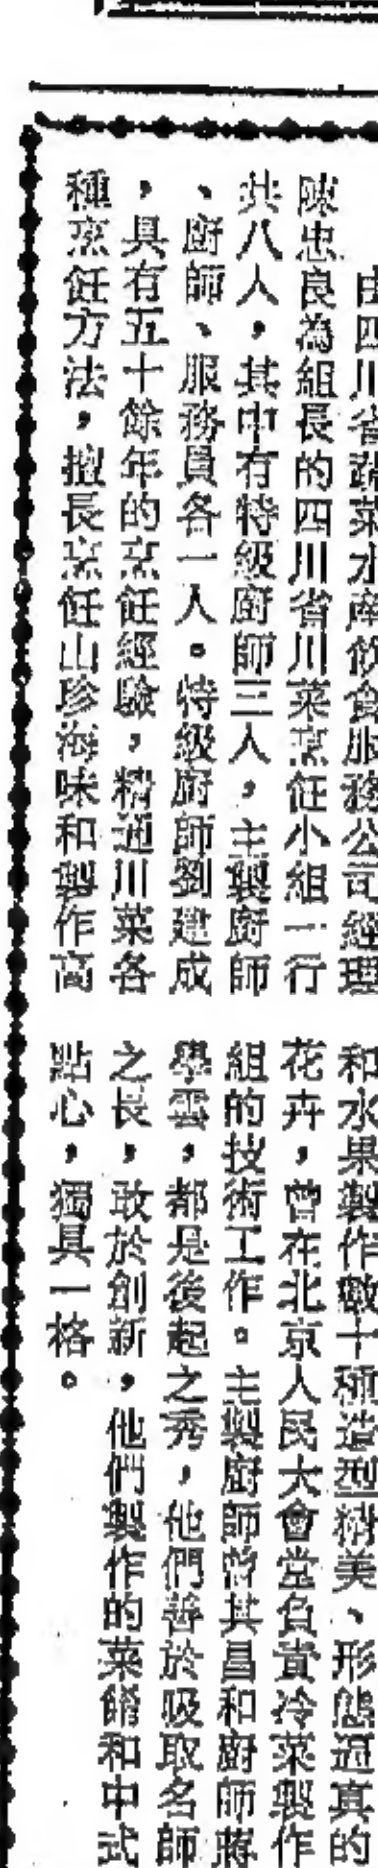 由四川省蔬菜水產飲食服務公司經理
陳忠良為組長的四川省川菜烹飪小組一行
共八人，其中有特級廚師三人，主製廚師
、廚師、服務員各一人。特級廚師劉建成
，具有五十餘年的烹飪經驗，精通川菜各
種烹飪方法，擅長烹飪山珍海味和製作高
和水果製作數十種造型精美、形態逼真的
花卉，曾在北京人民大會堂負責冷菜製作
組的技術工作。主製廚師曾其昌和廚師蔣
學雲，都是後起之秀，他們善於吸取名師
之長，敢於創新，他們製作的菜餚和中式
點心，獨具一格。